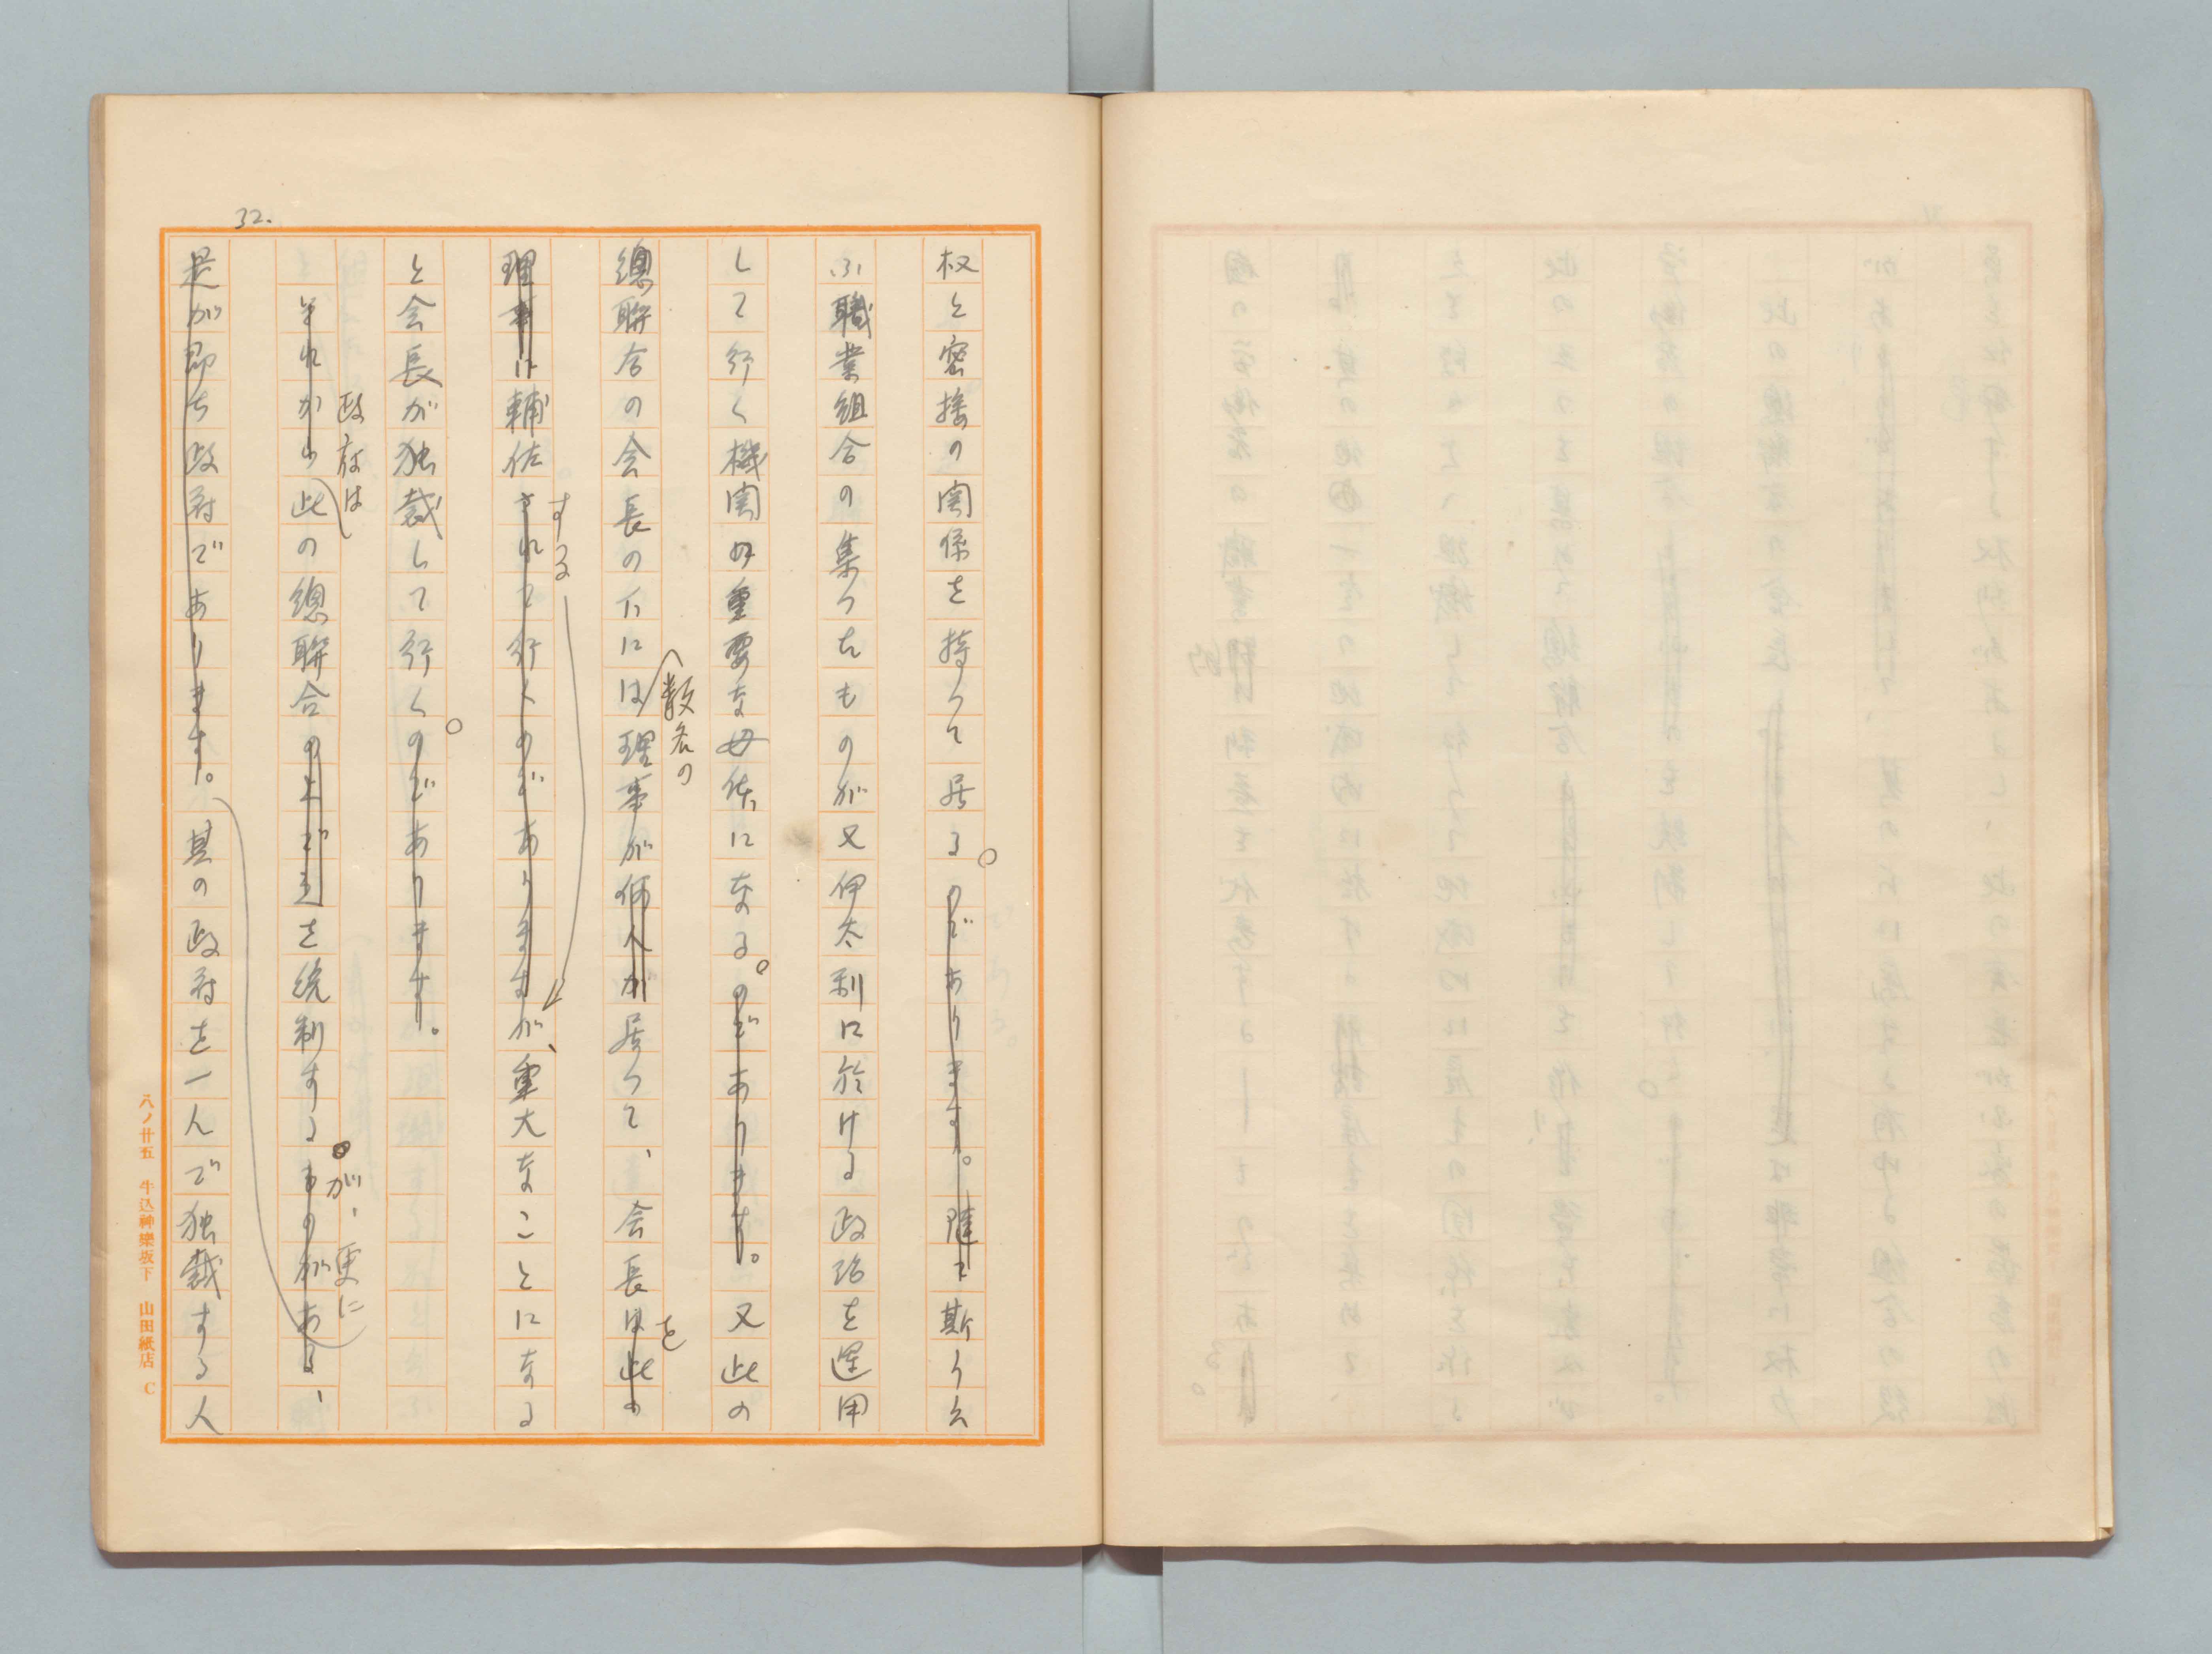 32.
权と密接の関係を持つて居る。のであります。随て斯う云
ふ職業組合の集つたものが又伊太利に於ける政治を運用
して行く機関の重要な母体になる。のであります。又此の
数名の
總聯合の会長の下には理事が何人が居つて、会長は此の
を
する
理事に輔佐されて行くのでありますが、重大なことになる
と会長が独裁して行く。のであります。
政府は
それから此の總聯合の上で之を統制するものがある、
が、更に
是が即ち政府であります。其の政府を一人で独裁する人
八ノ廿五 牛込神樂坂下 山田紙店 C